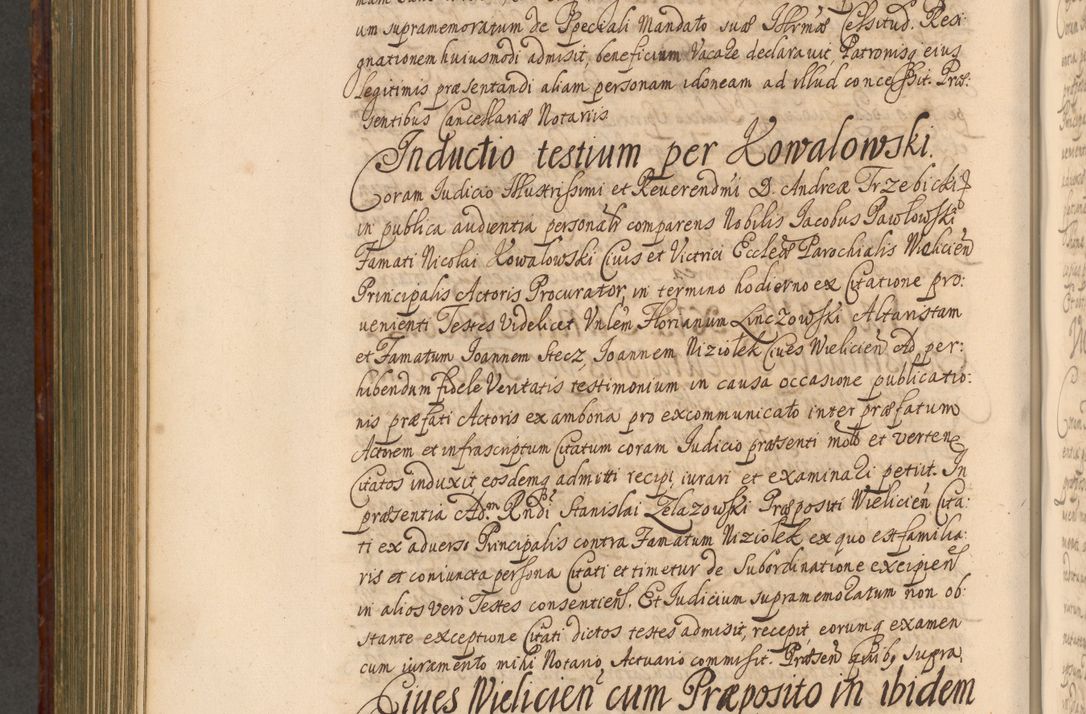 um supramemoratum de Speciali Mandato suæ Illrmæ Celsitud. Resi:
gnationem huiusmodi admisit, beneficium Vacare declaravit, Patronisq eius
legitimis præsentandi aliam personam idoneam ad illud concessit. Præ:
sentibus Cancellariæ Notariis
Inductio testium per Kowalowski.
Coram Iudicio Illustrissimi et Reverendmi D. Andreæ Trzebicki
in publica audientia personalr comparens Nobilis Iacobus Pawlowski
Famati Nicolai Kowalowski Civis et Victrici Eccleæ Parochialis Wielicien
Principalis Actoris Procurator, in termino hodierno ex Citatione pro:
venienti Testes Videlicet Vnlem Florianum Linczowski Altaristam
et Famatum Joannem Stecz, Joannem Niziolek Cives Wielicien Ad per:
hibendum fidele Veritatis testimonium in causa occasione publicatio:
nis præfati Actoris ex ambona pro excommunicato inter præfatum
Actorem et infrascriptum Citatum coram Iudicio præsenti mota et verten
Citatos induxit eosdemq admitti recipi, iurari et examinari petiit. In
præsentia Adm Rndi Stanislai Zelazowski Præpositi Wielicien Cita:
ti ex adverso Principalis contra Famatum Niziolek ex quo est familia:
ris et coniuncta persona Citati et timetur de Subordinatione excipien
in alios vero Testes consentien. Et Iudicium supramemoratum non ob:
stante exceptione Citati dictos testes admisit, recepit, eorumq examen
cum iuramento mihi Notario, Actuario commisit. Præsen quib, supra,
Cives Wielicien cum Præposito in ibidem